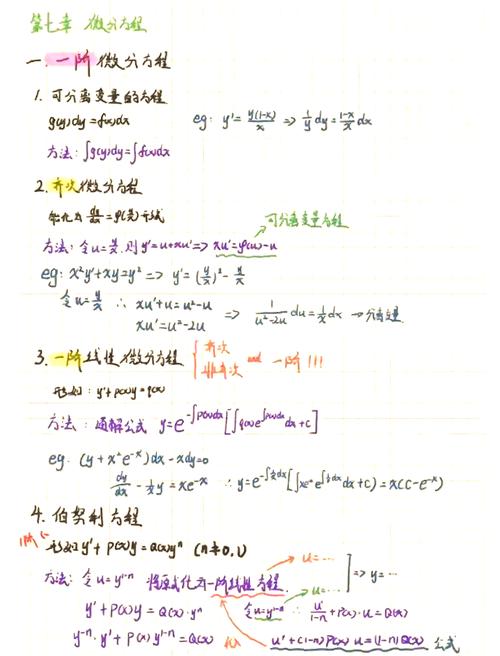 第七章 微分方程
一. 一阶微分方程
1. 可分离变量的方程
g(y)dy=f(x)dx
eg: y'=y(1-x)/x => 1/y dy = (1-x)/x dx
方法: ∫g(y)dy=∫f(x)dx
2. 齐次微分方程
能化为 dy/dx=φ(y/x) 形式
可分离变量方程
方法: 令u=y/x, 则y'=u+xu' => xu'=φ(u)-u
eg: x²y'+xy=y² => y'=(y/x)²-y/x
令u=y/x ∴ xu'+u=u²-u
xu'=u²-2u
=> 1/(u²-2u) du=1/x dx →分离变量.
3. 一阶线性微分方程 { 齐次 非齐次 and 一阶!!!
形如: y'+p(x)y=q(x)
方法: 通解公式 y=e^(-∫p(x)dx)[∫q(x)e^(∫p(x)dx)dx+c]
eg: (y+x²e^(-x))dx-xdy=0
dy/dx-1/x y=xe^(-x) ∴ y=e^(-∫-1/x dx)[∫xe^(-x)e^(∫-1/x dx)dx+c)=x(c-e^(-x))
4. 伯努利方程
形如y'+p(x)y=Q(x)yⁿ (n≠0,1)
方法: 令u=y^(1-n) 将原式化为一阶线性方程.
u=⋯
u=⋯
] => y=⋯
y'+p(x)y=Q(x)·yⁿ
令u=y^(1-n) ∴ u'/(1-n)+p(x)·u=Q(x)
y^(-n)·y'+p(x)y^(1-n)=Q(x)
u'+(1-n)p(x)u=(1-n)Q(x) 公式